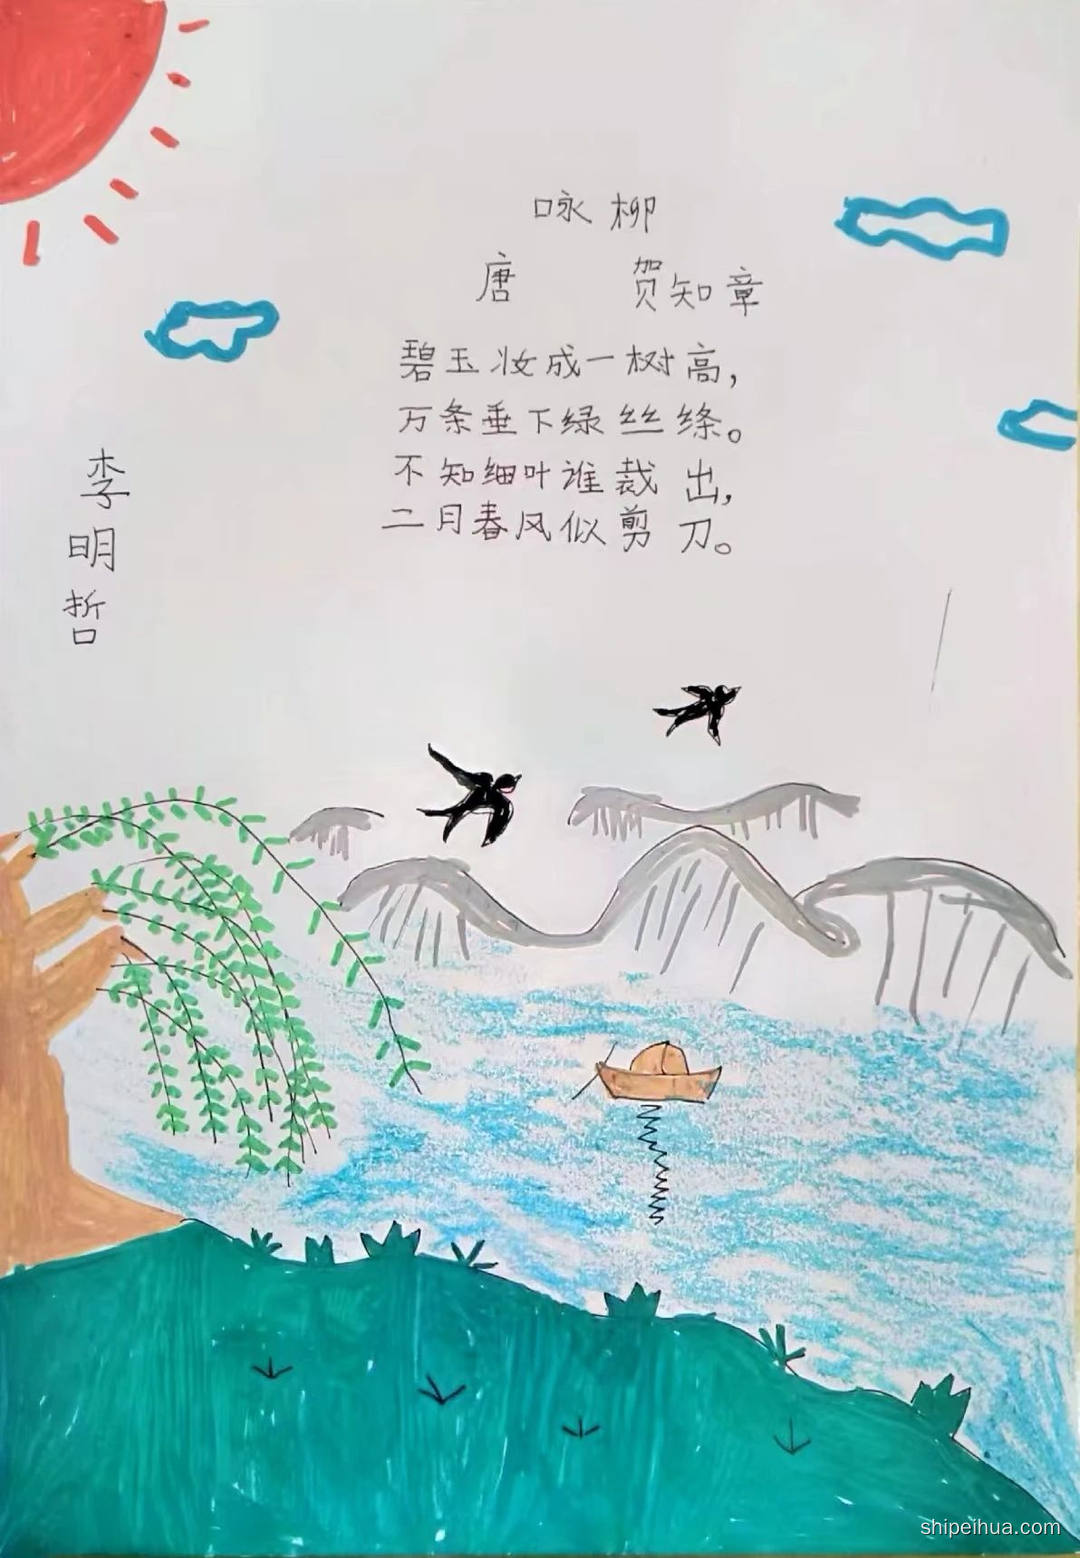 咏柳
唐 贺知章
碧玉妆成一树高，
万条垂下绿丝绦。
不知细叶谁裁出，
二月春风似剪刀。
李明哲
shipeihua.com